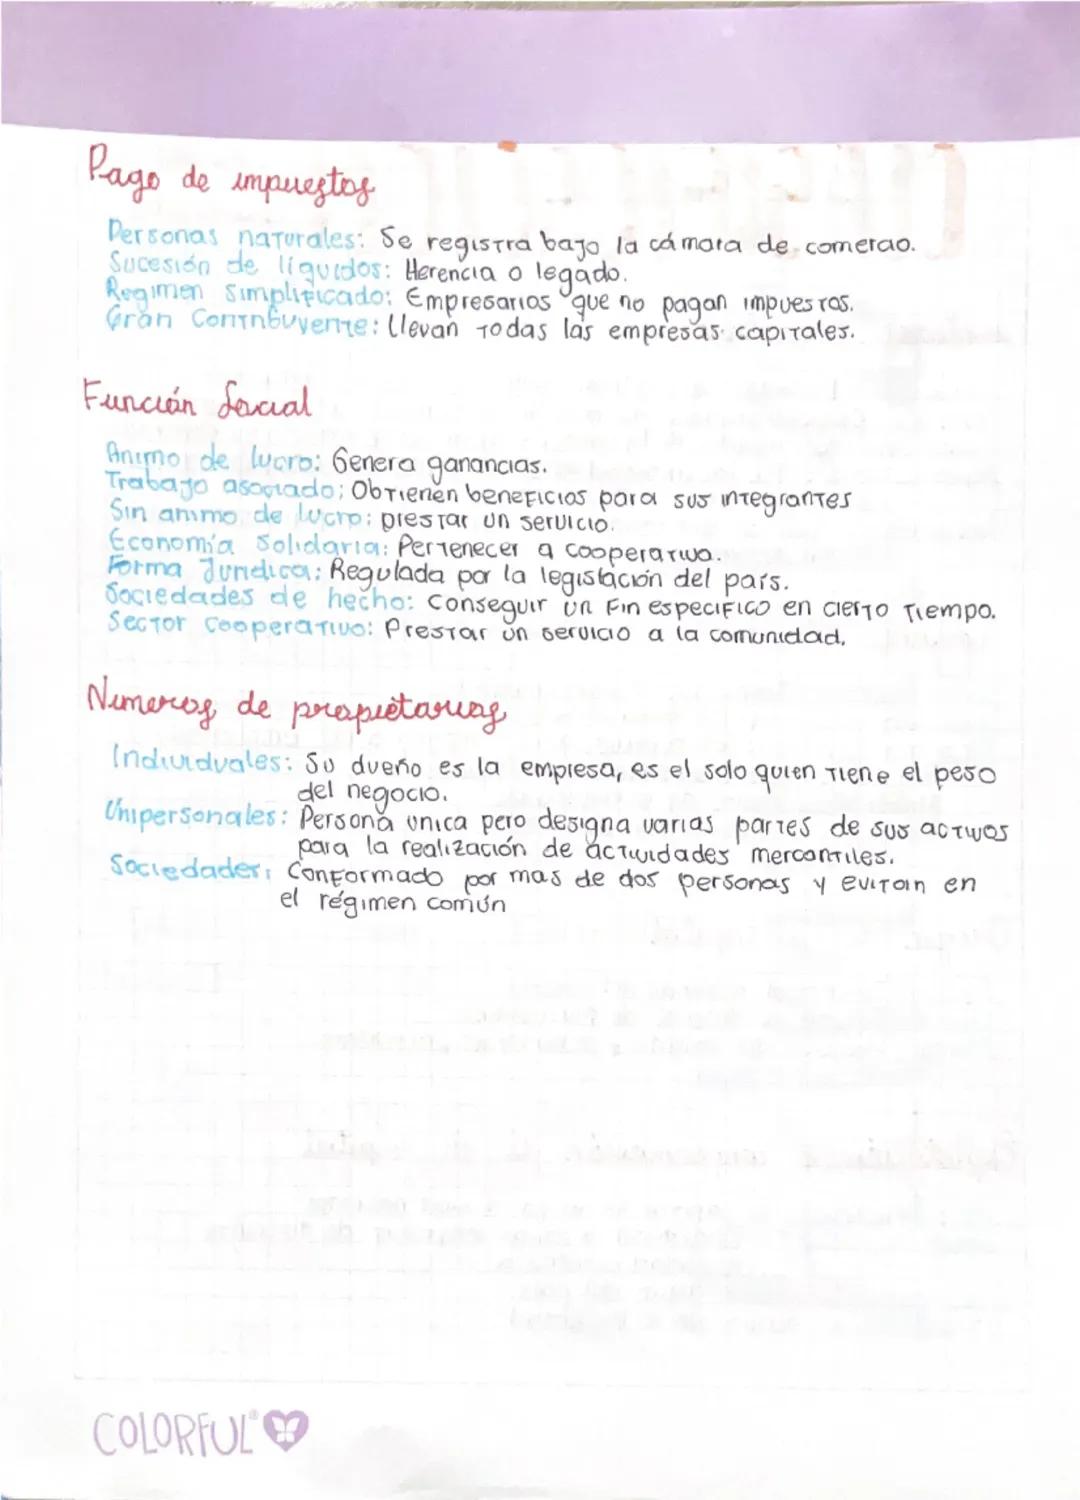 Pago de impuestos
Personas naturales: Se registra bajo la cámara de comercio.
Sucesión de líquidos: Herencia o legado.
Regimen Simplificado: Empresarios que no pagan impuestos.
Gran Contribuyente: Llevan todas las empresas capitales.
Función Social
Animo de lucro: Genera ganancias.
Trabajo asociado: Obtienen beneficios para sus integrantes
Sin animo de lucro: prestar un servicio.
Economía Solidaria: Pertenecer a cooperativa.
Forma Jurídica: Regulada por la legislación del país.
Sociedades de hecho: Conseguir un Fin especifico en cierto tiempo.
Sector cooperativo: Prestar un servicio a la comunidad.
Numeros de propietarios
Individuales: Su dueño es la empresa, es el solo quien tiene el peso
del negocio.
Unipersonales: Persona unica pero designa varias partes de sus activos
para la realización de actividades mercantiles.
Sociedades: Conformado por mas de dos personas y evitan en
el régimen común
COLORFUL®